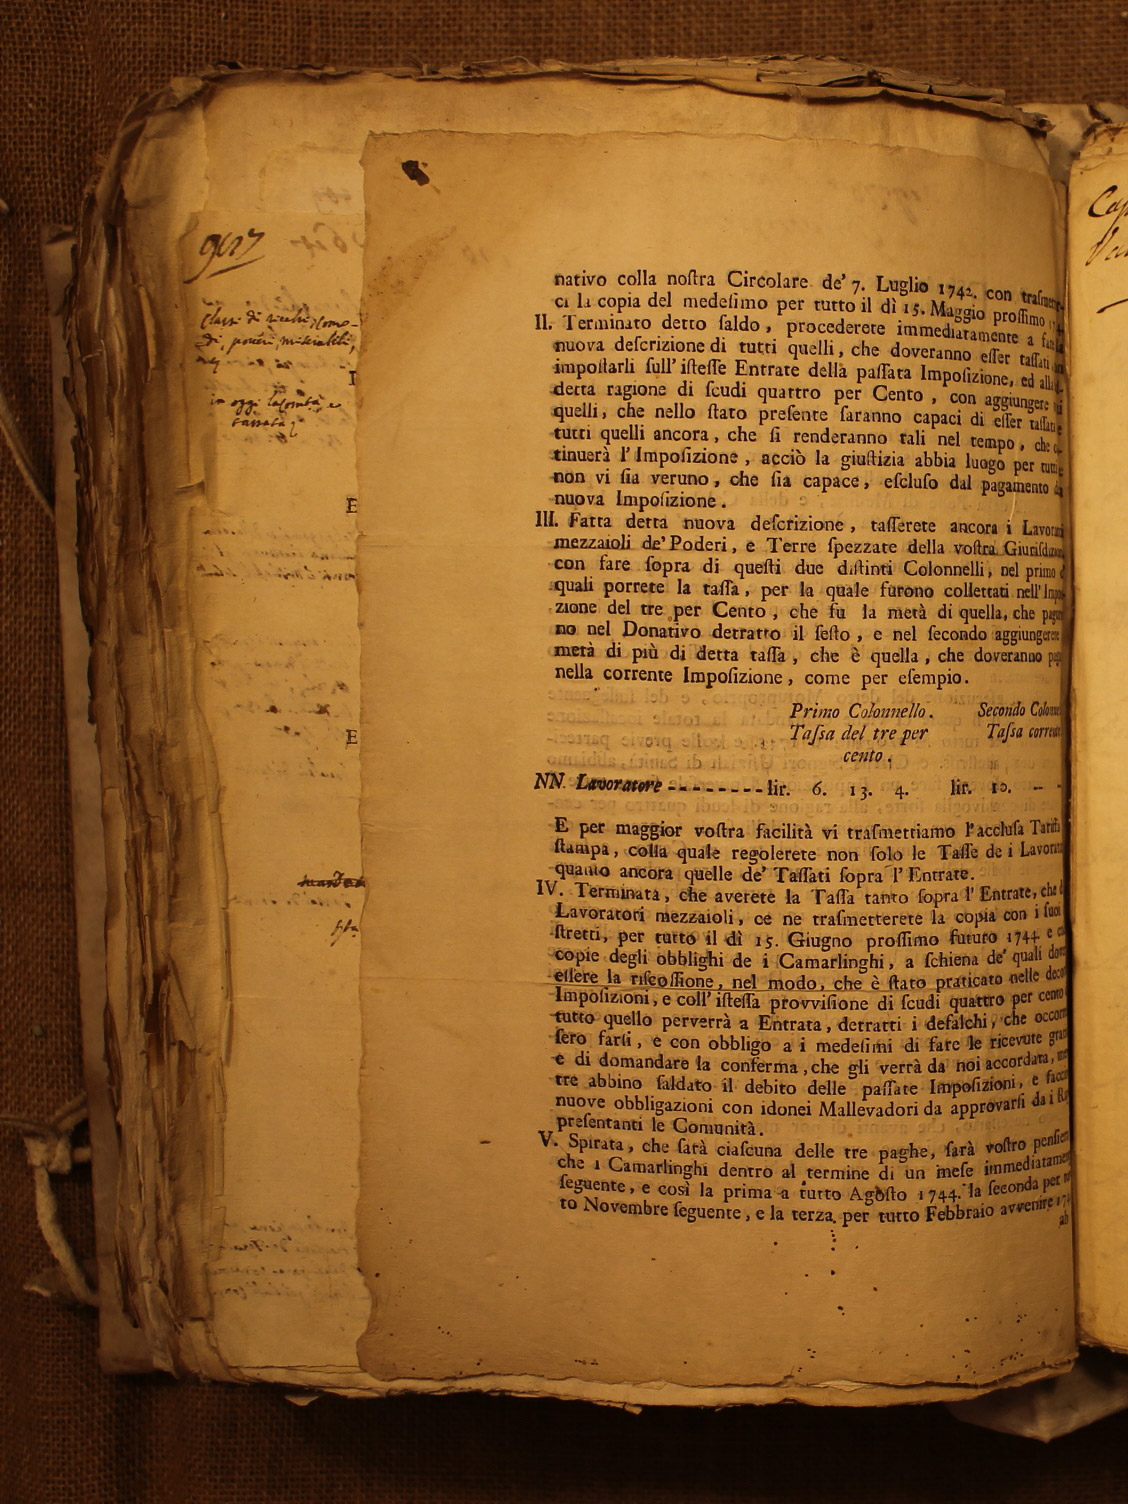 nativo colla noſtra Circolare de' 7. Luglio 1742. con traſmetter-
ci la copia del medeſimo per tutto il dì 15. Maggio proſſimo
II. Terminato detto ſaldo, procederete immediatamente a
nuova deſcrizione di tutti quelli, che doveranno eſſer taſſati
impoſtarli ſull'iſteſſe Entrate della paſſata Impoſizione, ed alla
detta ragione di ſcudi quattro per Cento, con aggiungere
quelli, che nello ſtato preſente ſaranno capaci di eſſer taſſati
tutti quelli ancora, che ſi renderanno tali nel tempo, che
tinuerà l'Impoſizione, acciò la giuſtizia abbia luogo per tutti
non vi ſia veruno, che ſia capace, eſcluſo dal pagamento
nuova Impoſizione.
III. Fatta detta nuova deſcrizione, taſſerete ancora i Lavorat
mezzaioli de' Poderi, e Terre ſpezzate della voſtra Giuriſdizion
con fare ſopra di queſti due diſtinti Colonnelli, nel primo
quali porrete la taſſa, per la quale furono collettati nell'Impo
zione del tre per Cento, che fu la metà di quella, che pagar
no nel Donativo detratto il ſeſto, e nel ſecondo aggiungerete
metà di più di detta taſſa, che è quella, che doveranno pag
nella corrente Impoſizione, come per eſempio.
Primo Colonnello. Secondo Colonne
Taſsa del tre per Taſsa corrent
cento.
NN. Lavoratore - - - - - - - - lir. 6. 13. 4. lir. 10. - -
E per maggior voſtra facilità vi traſmettiamo l'accluſa Tariffa
ſtampa, colla quale regolerete non ſolo le Taſſe de i Lavorat
quanto ancora quelle de' Taſſati ſopra l'Entrate.
IV. Terminata, che averete la Taſſa tanto ſopra l'Entrate, che
Lavoratori mezzaioli, ce ne traſmetterete la copia con i ſuoi
ſtretti, per tutto il dì 15. Giugno proſſimo futuro 1744. e
copie degli obblighi de i Camarlinghi, a ſchiena de' quali dov
eſſere la riſcoſſione, nel modo, che è ſtato praticato nelle deco
Impoſizioni, e coll'iſteſſa provviſione di ſcudi quattro per cento
tutto quello perverrà a Entrata, detratti i defalchi, che occor
ſero farſi, e con obbligo a i medeſimi di fare le ricevute gra
e di domandare la conferma, che gli verrà da noi accordata,
tre abbino ſaldato il debito delle paſſate Impoſizioni, e facci
nuove obbligazioni con idonei Mallevadori da approvarſi da i
preſentanti le Comunità.
V. Spirata, che ſarà ciaſcuna delle tre paghe, ſarà voſtro penſier
che i Camarlinghi dentro al termine di un meſe immediatamen
ſeguente, e così la prima a tutto Agoſto 1744. la ſeconda per
to Novembre ſeguente, e la terza per tutto Febbraio avvenire
ab